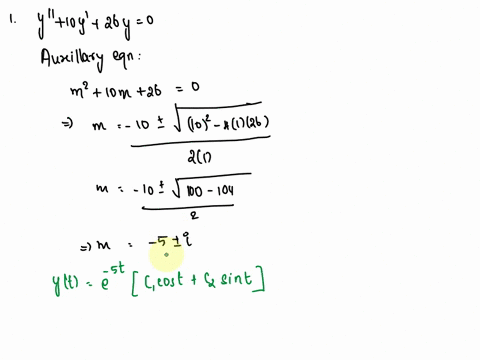 1. y''+10y'+26y=0
Auxillary eqn:
m²+10m+26 = 0
=) m = -10 ± √(10)²-4(1)(26)
2(1)
m = -10 ± √100-104
2
=) m = -5 ± i
y(t) = e^-5t [C₁cost + C₂ sint]